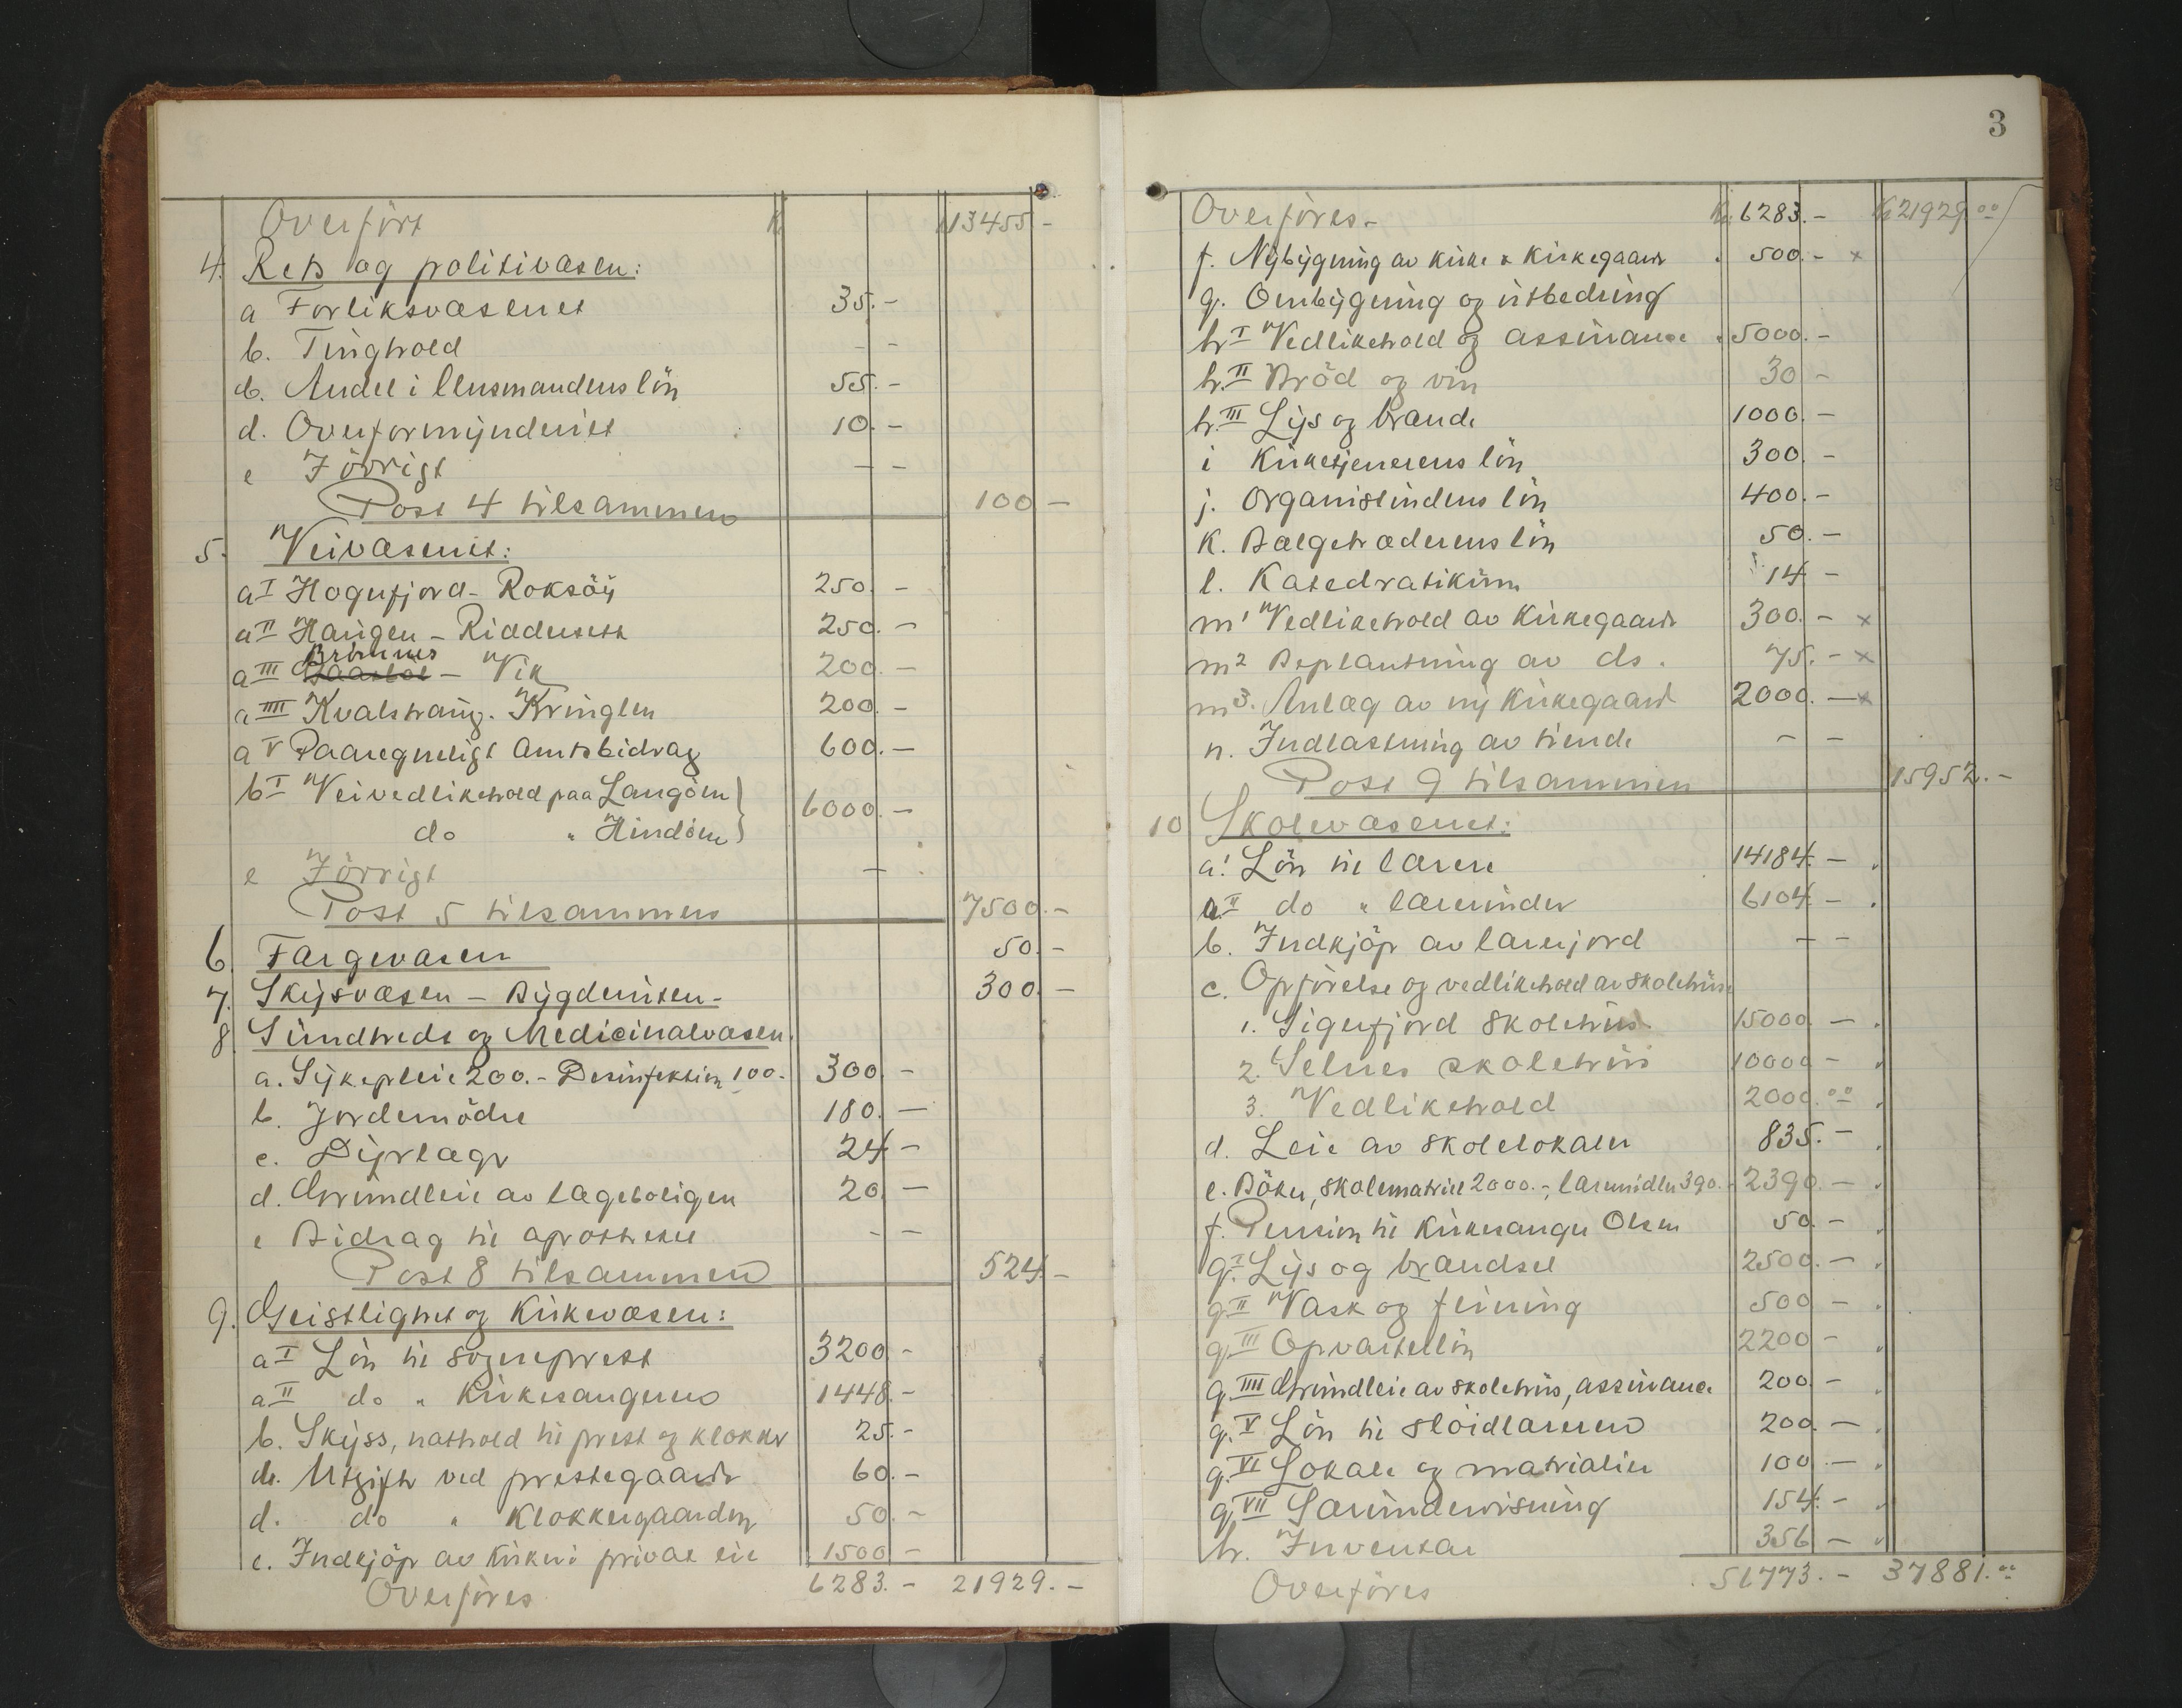 Overført K. 13455 -
4. Rets og politivæsen:
a Forliksvæsenet 35. -
b. Tinghold - -
c. Andel i lensmandens løn 55. -
d. Overformynderiet 10. -
e Iøvrigt - -
Post 4 tilsammen 100 -
5. Veivæsenet:
a I Hognfjord - Roksøy 250. -
a II Haugen - Riddersete 250. -
Brønnes
a III - Vik 200. -
a IIII Kvalshaug. Kringlen 200. -
a V Paaregnelig Amtsbidrag 600. -
b I Veivedlikehold paa Langøen } 6000. -
do " Hindøen
e Iøvrigt -
Post 5 tilsammen 7500. -
6. Færgevæsen 50. -
7. Skysvæsen - Bygderuten - 300. -
8. Sundheds og Medicinalvæsen.
a. Sykepleie 200. - Desinfektion 100. - 300 -
b. Jordemødre 180. -
c. Dyrlæge 24 -
d. Grundleie av lægeboligen 20 -
e Bidrag til apotheket - -
Post 8 tilsammen 524. -
9. Geistlighet og Kirkevæsen:
a I Løn til sogneprest 3200. -
a II do " Kirkesangeren 1448. -
b. Skyss, nathold til prest og klokker 25. -
c. Utgifter ved prestegaard 60. -
d. do " Klokkergaarden 50. -
e. Indkjøp av kirker i privat eie 1500 -
Overføres 6283. - 21929. -
3
Overføres - Kr. 6283. - Kr. 21929 00
f. Nybygning av kirke & Kirkegaard 500. - x
g. Ombygning og utbedring
h I Vedlikehold og assurance 5000. -
h. II Brød og vin 30 -
h. III Lys og brænde 1000. -
i Kirketjenerens løn 300. -
j. Organistindens løn 400. -
k. Bælgetræderens løn 50. -
l. Katedratikum 14 -
m 1 Vedlikehold av Kirkegaard 300. - x
m 2 Beplantning av do. 75. - x
m 3. Anlæg av ny Kirkegaard 2000. - x
n. Indløsning av tiende - -
Post 9 tilsammen 15952. -
10 Skolevæsenet:
a I Løn til lærere 14184. -
a II do " lærerinder 6104 -
b. Indkjøp av lærerjord - -
c. Opførelse og vedlikehold av skolehus
1. Sigerfjord skolehus 15000 -
2. Selnes skolehus 10000 -
3. Vedlikehold 2000. 00
d. Leie av skolelokaler 835. -
e. Bøker, skolematriel 2000. -, læremidler 390. - 2390. -
f. Pension til kirkesanger Olsen 50. -
g. I Lys og brændsel 2500. -
g. II Vask og feining 500 -
g. III Opvartelløn 2200 -
g. IIII Grundleie av skolehus, assurance 200. -
g. V Løn til sløidlæreren 200. -
g. VI Lokale og matrialier 100 -
g. VII Særundervisning 154. -
h. Inventar 356 -
Overføres 56773. - 37881. 00